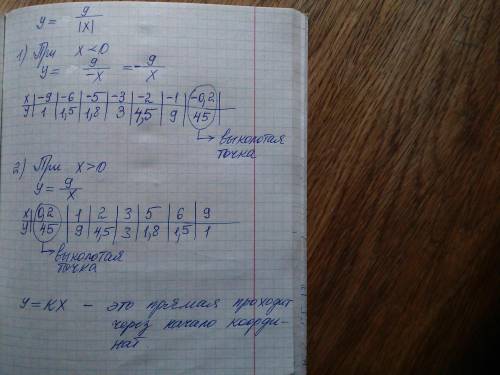 y = 9/|x|
1) При x < 0
y = 9/-x = -9/x
x | -9 | -6 | -5 | -3 | -2 | -1 | -0,2 |
y | 1 | 1,5 | 1,8 | 3 | 4,5 | 9 | 45 |
→ выколотая
точка
2) При x > 0
y = 9/x
x | 0,2 | 1 | 2 | 3 | 5 | 6 | 9
y | 45 | 9 | 4,5 | 3 | 1,8 | 1,5 | 1
→ выколотая
точка
y = kx – это прямая проходит
через начало коорди-
нат